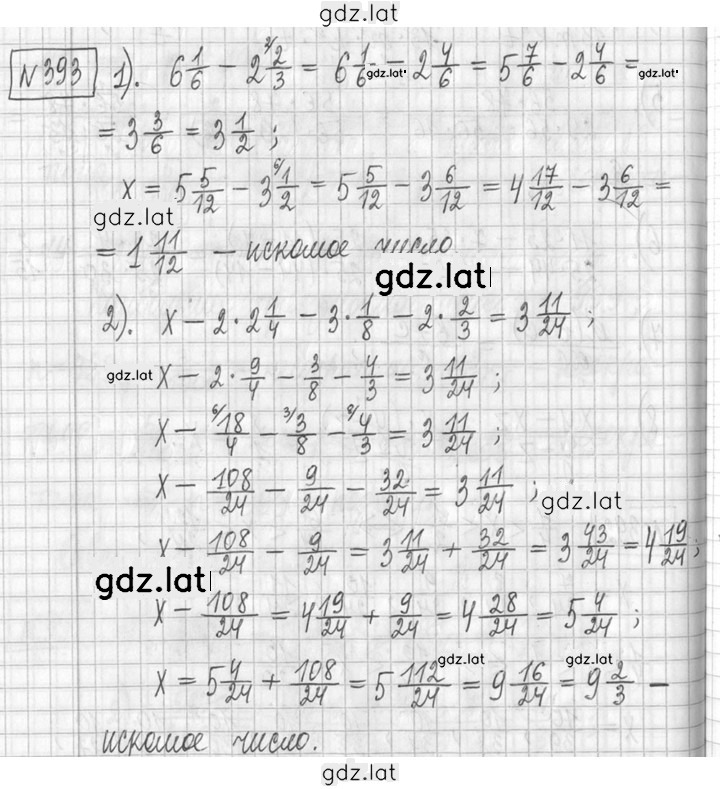 gdz.lat
№393 1). 6 1/6 − 2 ²⁄ 2/3 = 6 1/6 − 2 4/6 = 5 7/6 − 2 4/6 =
gdz.lat gdz.lat
= 3 3/6 = 3 1/2 ;
x = 5 5/12 − 3 ⁶⁄ 1/2 = 5 5/12 − 3 6/12 = 4 17/12 − 3 6/12 =
gdz.lat
= 1 11/12 − искомое число
gdz.lat
2). x − 2 · 2 1/4 − 3 · 1/8 − 2 · 2/3 = 3 11/24 ;
gdz.lat x − 2 · 9/4 − 3/8 − 4/3 = 3 11/24 ;
x − ⁶⁄ 18/4 − ³⁄ 3/8 − ⁸⁄ 4/3 = 3 11/24 ;
x − 108/24 − 9/24 − 32/24 = 3 11/24 ;
gdz.lat
x − 108/24 − 9/24 = 3 11/24 + 32/24 = 3 43/24 = 4 19/24 ;
gdz.lat
x − 108/24 = 4 19/24 + 9/24 = 4 28/24 = 5 4/24 ;
gdz.lat gdz.lat
x = 5 4/24 + 108/24 = 5 112/24 = 9 16/24 = 9 2/3 −
искомое число.
gdz.lat